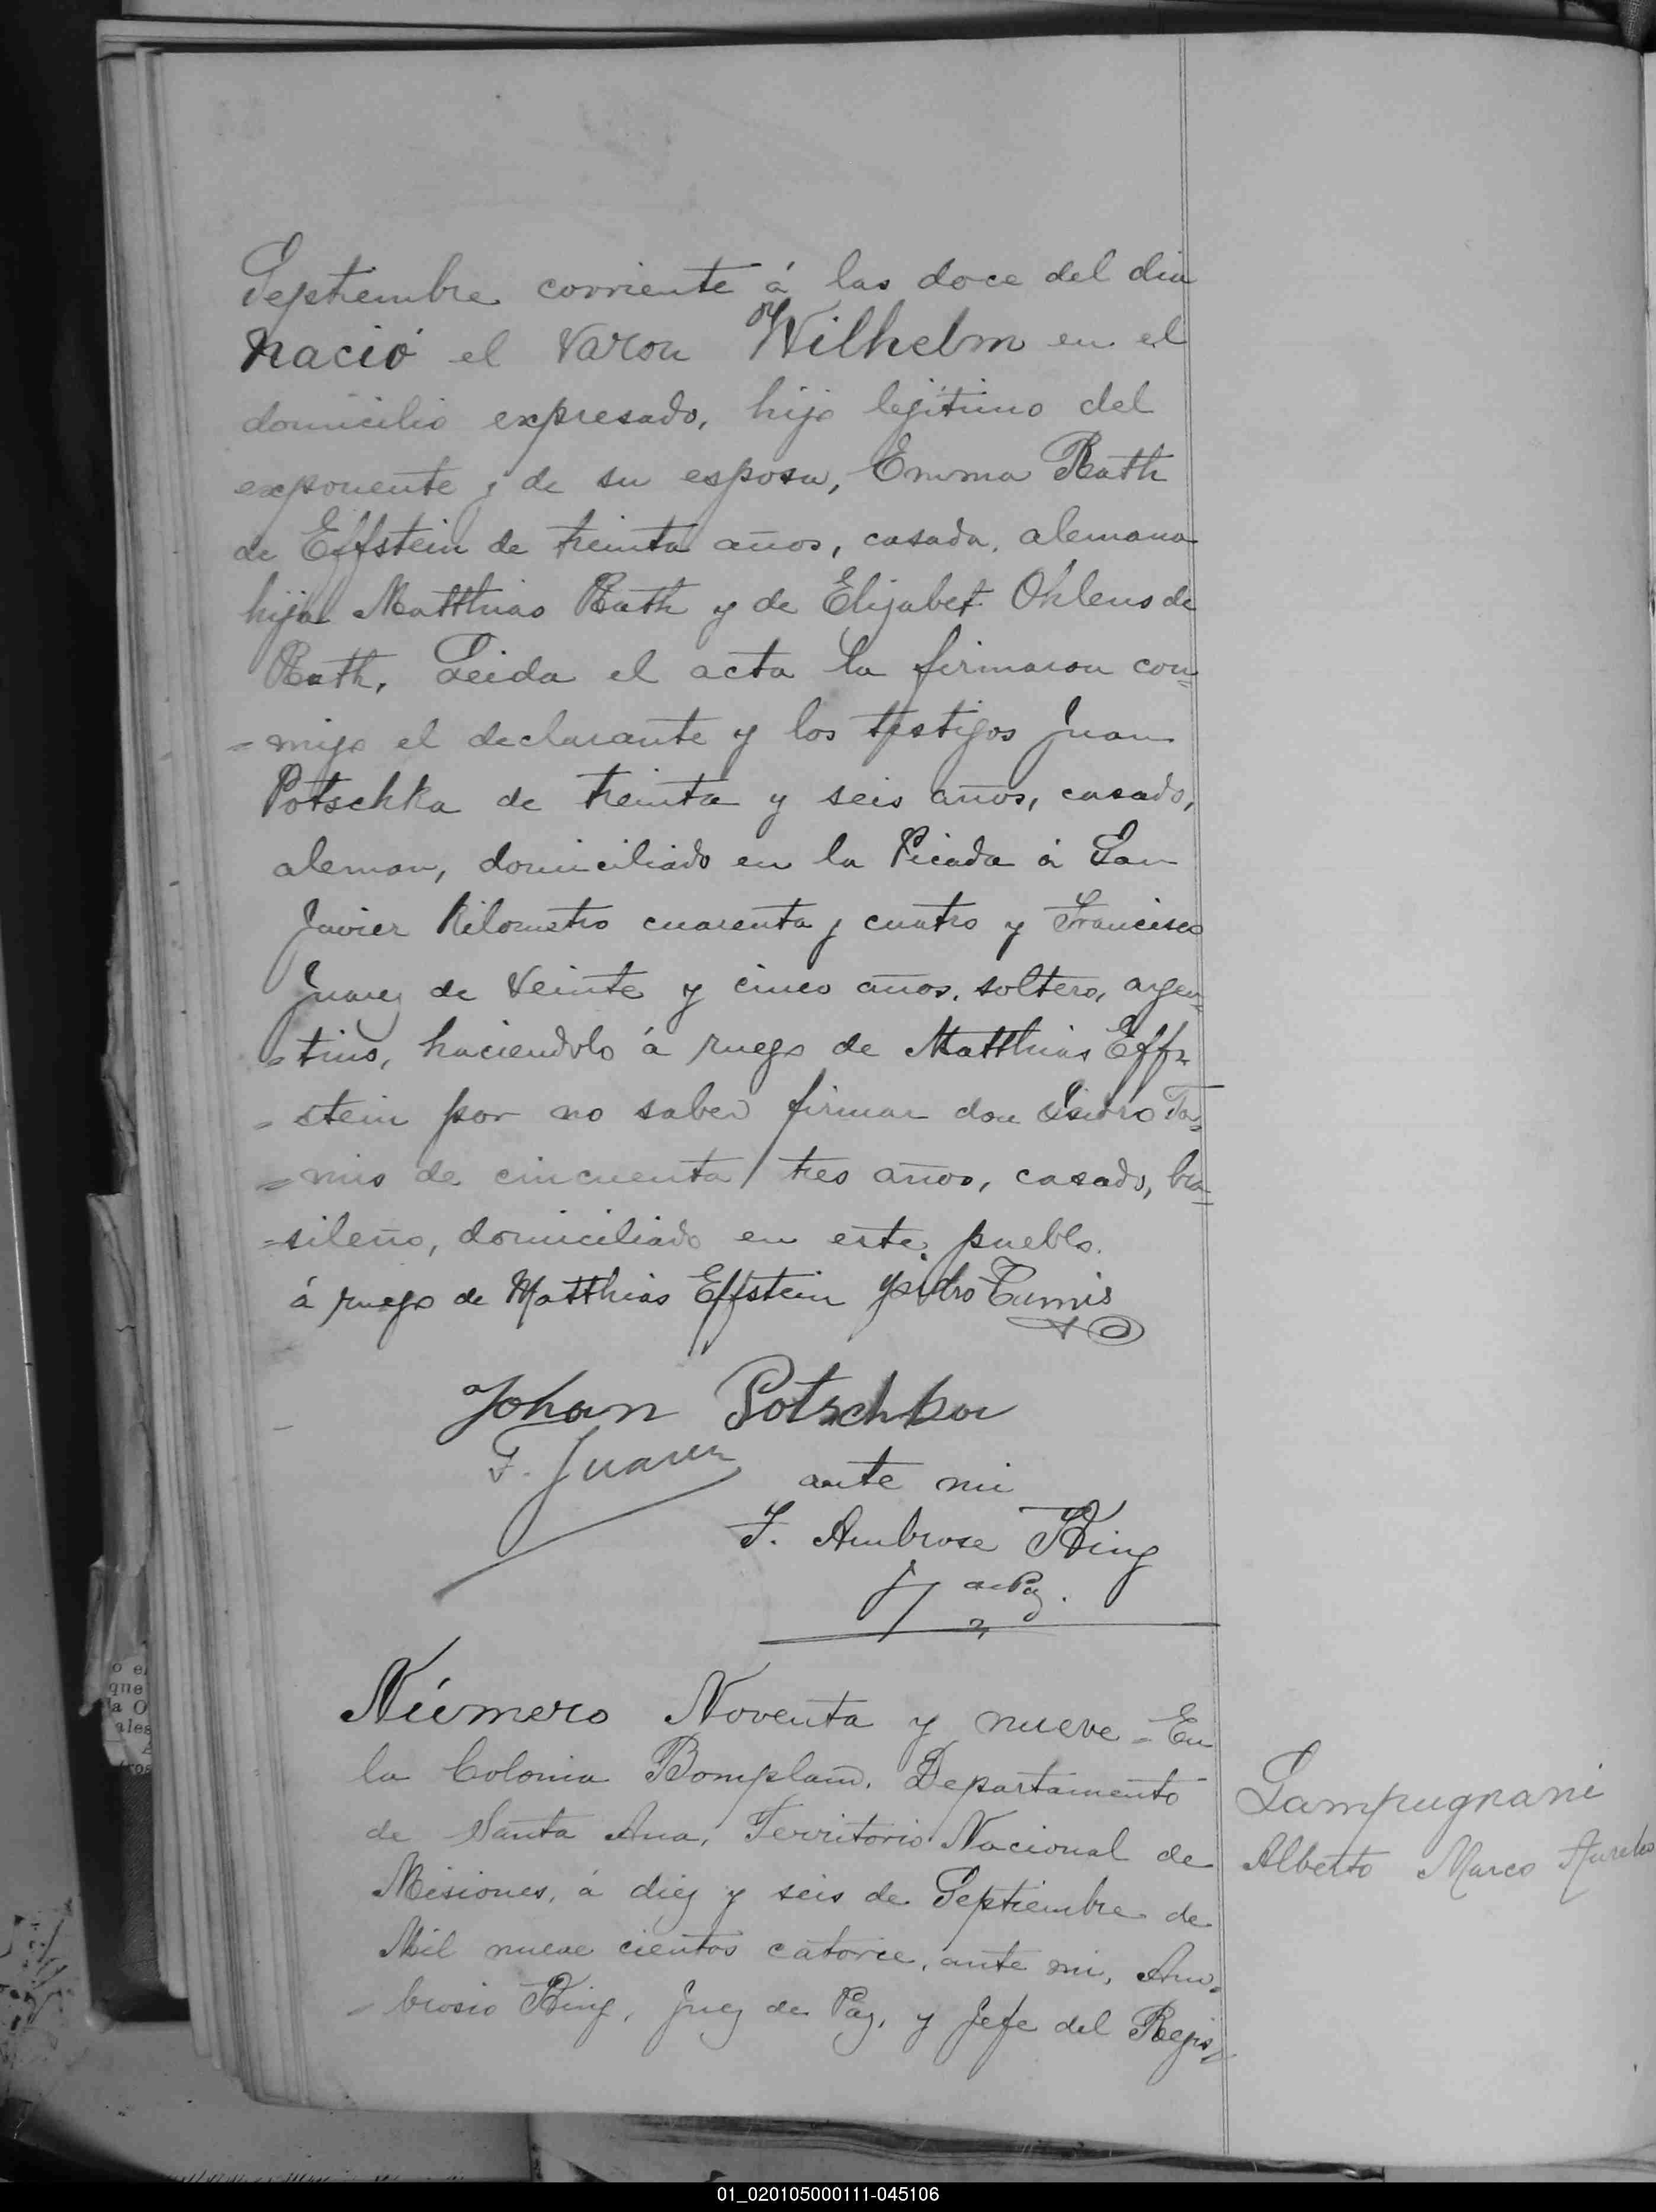 Septiembre corriente á las doce del dia
nació el varon Wilhelm en el
domicilio expresado, hijo legítimo del
exponente y de su esposa, Emma Rath
de Effstein de treinta años, casada, alemana
hija Matthias Rath y de Elizabet Ohlens de
Rath. Leida el acta la firmaron con=
=migo el declarante y los testigos Juan
Potschka de treinta y seis años, casado,
aleman, domiciliado en la Picada á San
Javier Kilometro cuarenta y cuatro y Francisco
Juarez de veinte y cinco años, soltero, argen=
=tino, haciendolo á ruego de Matthias Eff=
=stein por no saber firmar don Isidro Ta=
=mis de cincuenta y tres años, casado, bra=
=sileño, domiciliado en este pueblo.
á ruego de Matthias Effstein Ysidro Tamis
Johan Potschka
F. Juarez
ante mi
F. Ambrose King
J de Paz.
Número Noventa y nueve = En
la Colonia Bompland, Departamento
de Santa Ana, Territorio Nacional de
Misiones, á diez y seis de Septiembre de
Mil nueve cientos catorce, ante mi, Am=
=brosio King, Juez de Paz, y Jefe del Regis=
Lampugnani
Alberto Marco Aurelio
o e
que
la O
ales
tros
01_020105000111-045106